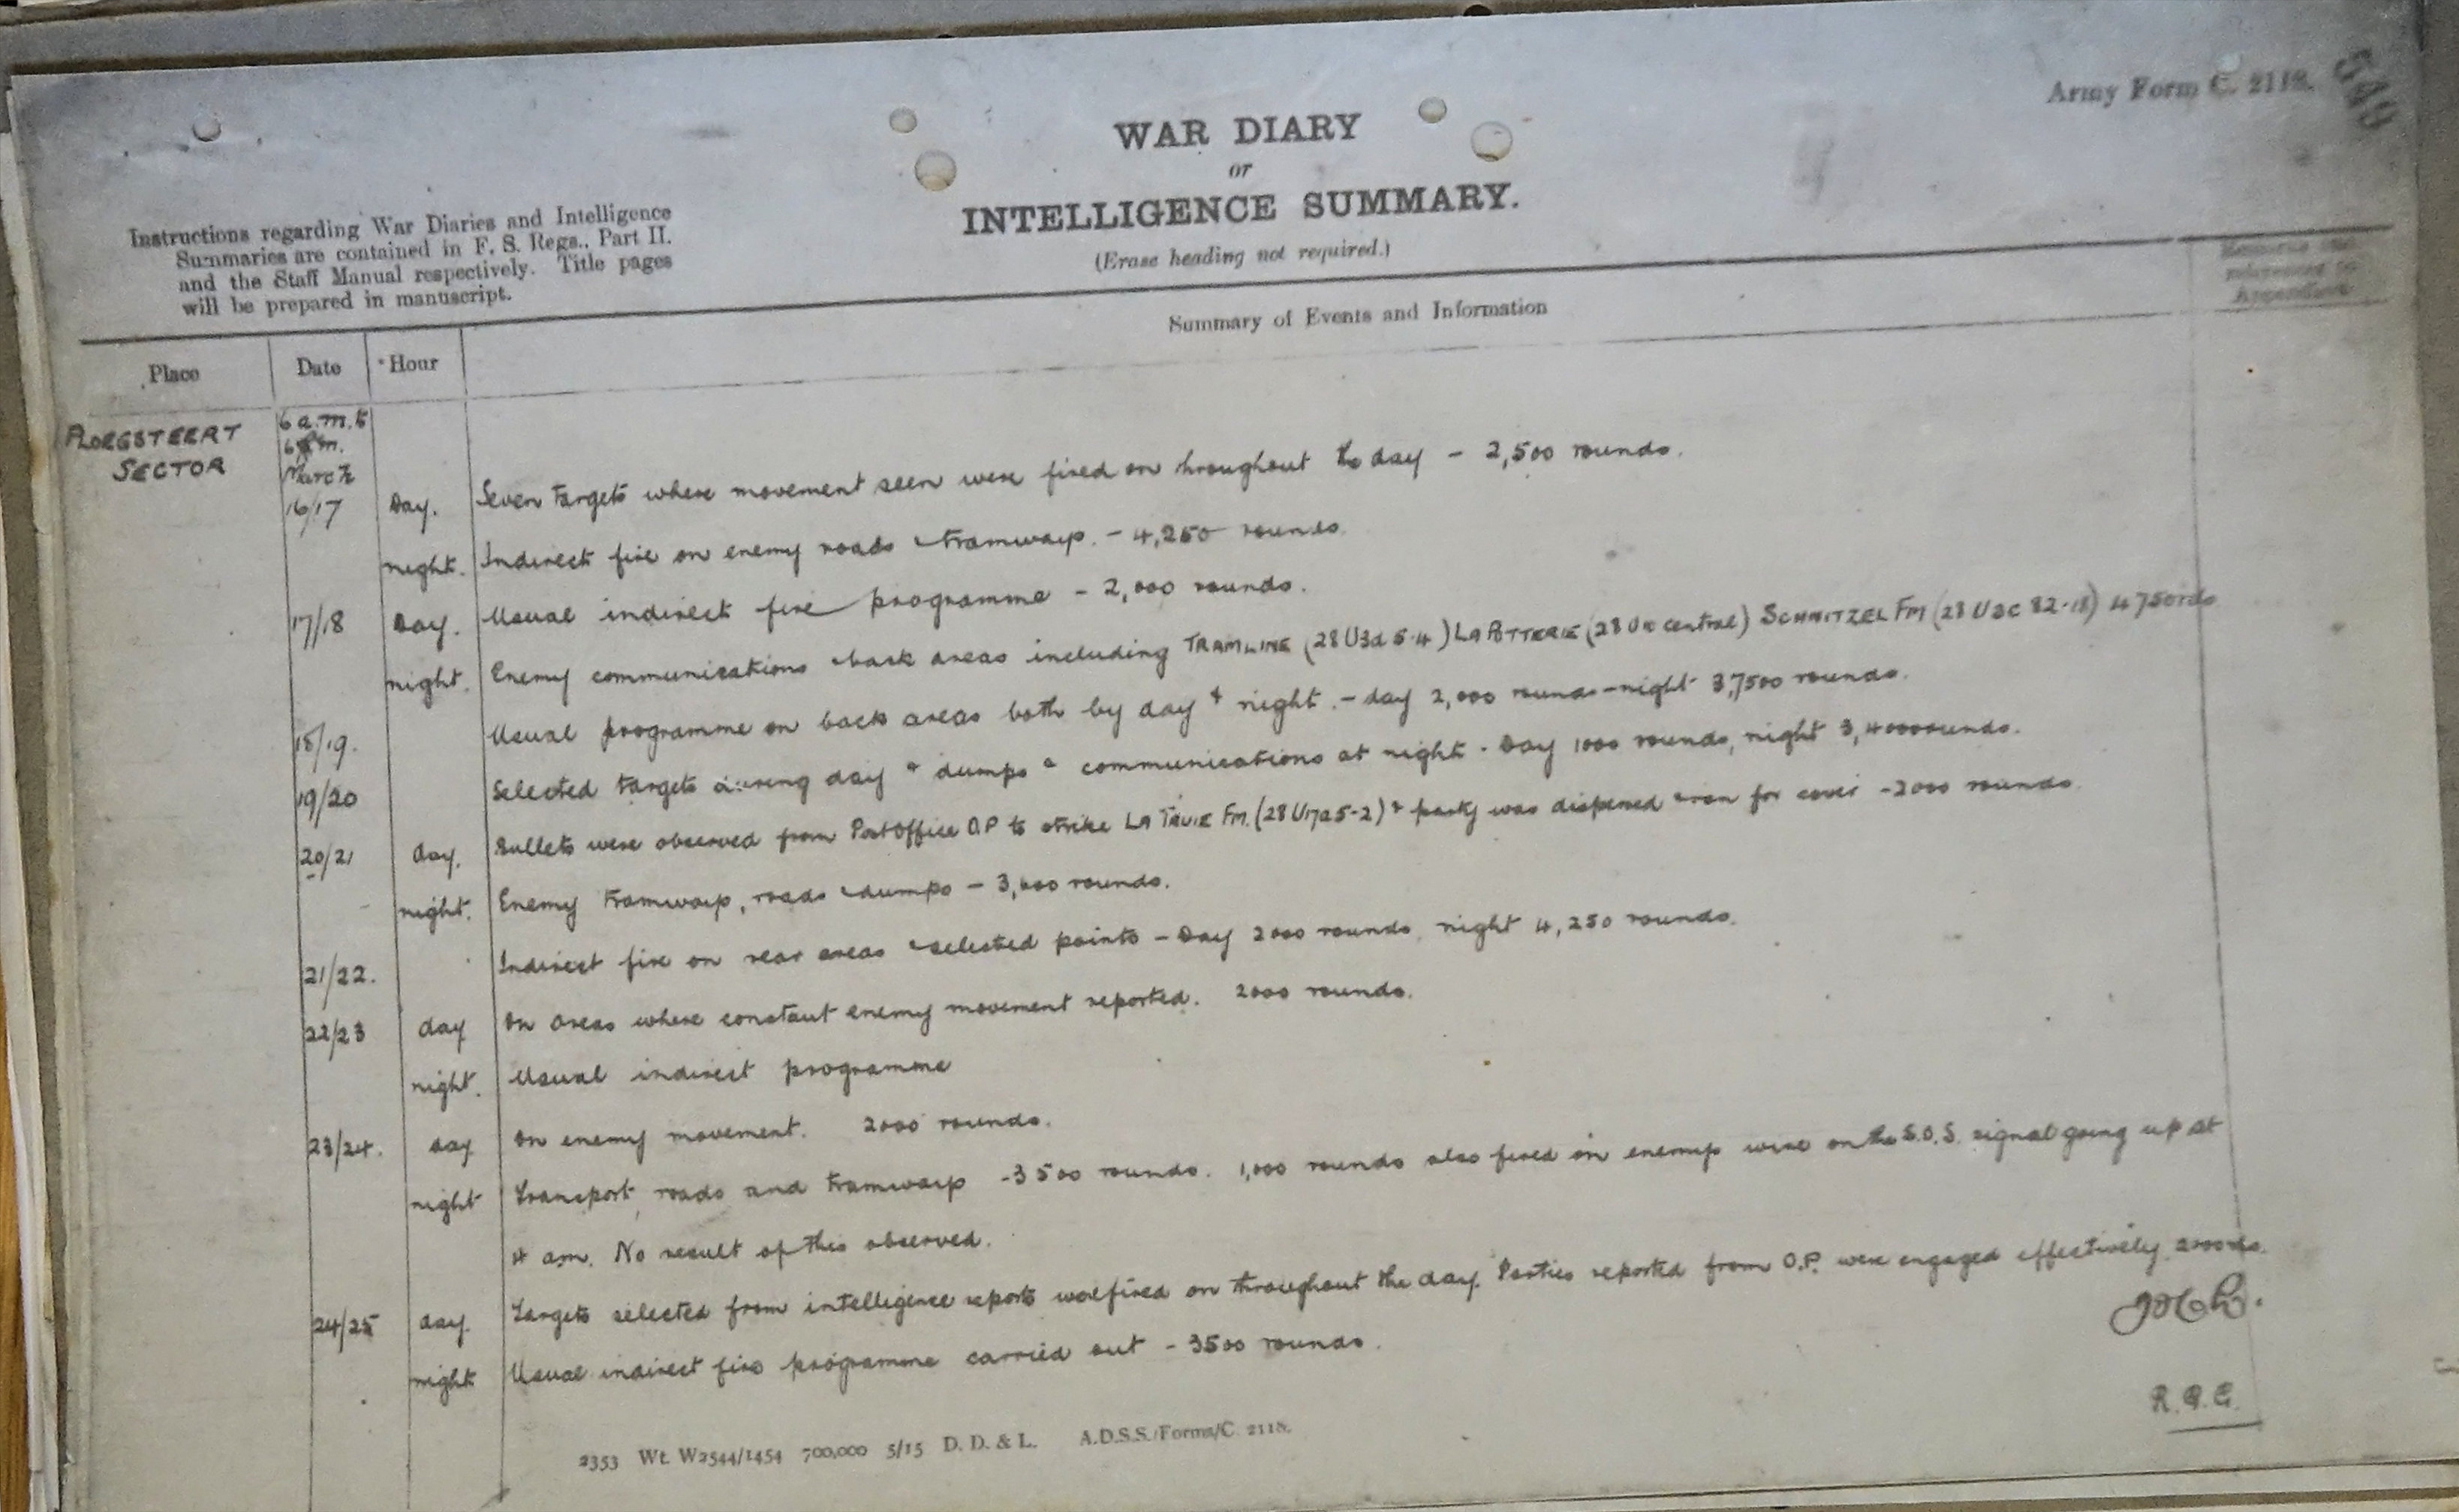 Army Form C. 2118.
549
WAR DIARY
or
INTELLIGENCE SUMMARY.
(Erase heading not required.)
Instructions regarding War Diaries and Intelligence
Summaries are contained in F. S. Regs., Part II.
and the Staff Manual respectively. Title pages
will be prepared in manuscript.
Summary of Events and Information
Remarks and
references to
Appendices
Place Date Hour
PLOEGSTEERT SECTOR
6 a.m. to
6 a.m.
March
16/17 Day. Seven targets where movement seen were fired on throughout the day - 2,500 rounds.
night. Indirect fire on enemy roads & tramways. - 4,250 rounds.
17/18 Day. Usual indirect fire programme - 2,000 rounds.
night. Enemy communications & back areas including TRAMLINE (28 U3d 5.4) LA POTTERIE (28 central) SCHNITZEL FM (28 U 3C 82.18) 4750 rds
18/19. Usual programme on back areas both by day & night. - day 2,000 rounds - night 3,7500 rounds.
19/20 Selected targets during day & dumps & communications at night. Day 1000 rounds, night 3,4000 rounds.
20/21 day. Bullets were observed from Post Office O.P to strike LA TRUIE FM. (28 U17a 5-2) & party was dispersed & ran for cover - 2000 rounds.
night. Enemy tramways, roads & dumps - 3,000 rounds.
21/22. Indirect fire on rear areas & selected points - Day 2000 rounds, night 4,250 rounds.
22/23 day On areas where constant enemy movement reported. 2000 rounds.
night. Usual indirect programme
23/24. day On enemy movement. 2000 rounds.
night Transport, roads and tramways - 3500 rounds. 1,000 rounds also fired on enemys wire on the S.O.S. signal going up at
4 am. No result of this observed.
24/25 day. Targets selected from intelligence reports were fired on throughout the day. Parties reported from O.P. were engaged effectively 2000 rds.
night Usual indirect fire programme carried out - 3500 rounds.
2353 Wt. W2544/1454 700,000 5/15 D. D. & L. A.D.S.S./Forms/C. 2118.